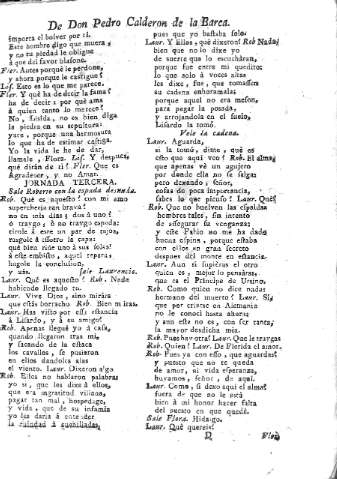 De Don Pedro Calderon de la Barca.
importa el bolver por ti.
Este hombre digo que muera,
y no tu piedad le obligue
á que del favor blasone.
Flor. Antes porque le perdone,
y ahora porque le castigue?
Lis. Esto es lo que me parece.
Flor. Y qué ha de decir la fama?
ha de decir
á quien tanto lo merece?
No, Lisida, no es bien diga
la piedra en su sepultura:
yace, porque una hermosura
lo que ha de estimar castiga.
Yo la vida le he de dar,
llamale, Flora. Lis. Y despues,
qué dirán de ti? Flor. Que es
Agradecer, y no Amar.
JORNADA TERCERA.
Sale Roberto con la espada desnuda.
Rob. Qué es aquesto? con mi amo
supercheria tan brava?
no en mis dias; dos á uno?
ó traygo, ó no traygo espada:
tirole á este un par de tajos,
rasgole á essotro la capa:
qué bien riñe uno á sus solas!
á este embisto, aquel repara:
hagole la conclusion,
y zás. Sale Laurencio.
Laur. Qué es aquesto? Rob. Nada
habiendo llegado tu.
Laur. Vive Dios, sino mirára
que estás borracho Rob. Bien miras.
Laur. Has visto por essa estancia
á Lisardo, y á su amigo?
Rob. Apenas llegué yo á casa,
quando llegaron tras mi,
y sacando de la estaca
los cavallos, se pusieron
en ellos dandolos alas
el viento. Laur. Dixeron algo
Rob. Ellos no hablaron palabras
yo sí, que les dixe á ellos,
que era ingratitud villana,
pagar tan mal, hospedage,
y vida, que de su infamia
yo les daria á entender
la ruindad á cuchilladas,
pues que yo bastaba solo.
Laur. Y Ellos, qué dixeron? Rob Nada;
bien que no lo dixe yo
de suerte que lo escucháran,
porque fue entre mi quedito:
lo que solo á voces altas
les dixe, fue, que tomassen
su cadena enhoramala;
porque aquel no era meson,
para pagar la posada,
y arrojandola en el suelo,
Lisardo la tomó.
Vele la cadena.
Laur. Aguarda,
si la tomó, dime, qué es
esto que aqui veo? Rob. El alma;
que apenas vé un agujero
por donde ella no se salga:
pero dexando, señor,
cosas de poca importancia,
sabes lo que pienso? Laur. Qué?
Rob. Que no buelven las espaldas
hombres tales, sin intento
de assegurar su venganza;
y este Fabio no me ha dado
buena espina, porque estaba
con ellos en gran secreto
despues del monte en essa estancia.
Laur. Aun si supieras el otro
quien es, mejor lo pensáras.
que es el Principe de Ursino.
Rob. Como quien no dice nadas
hermano del muerto? Laur. Si,
que por criarse en Alemania
no le conocí hasta ahora;
y aun este no es, con ser tanta,
la mayor desdicha mia.
Rob. Pues hay otra? Laur. Que le traygas
Rob. Quien? Laur. De Florida el amor.
Rob. Pues ya con esso, que aguardas?
y puesto que no te queda
de amor, ni vida esperanza,
huyamos, señor, de aqui.
Laur. Como, si dexo aqui el alma?
fuera de que no le está
bien á mi honor hacer falta
del puesto en que quedé.
Sale Flora. Hidalgo.
Laur. Qué quereis?
D
Flor.